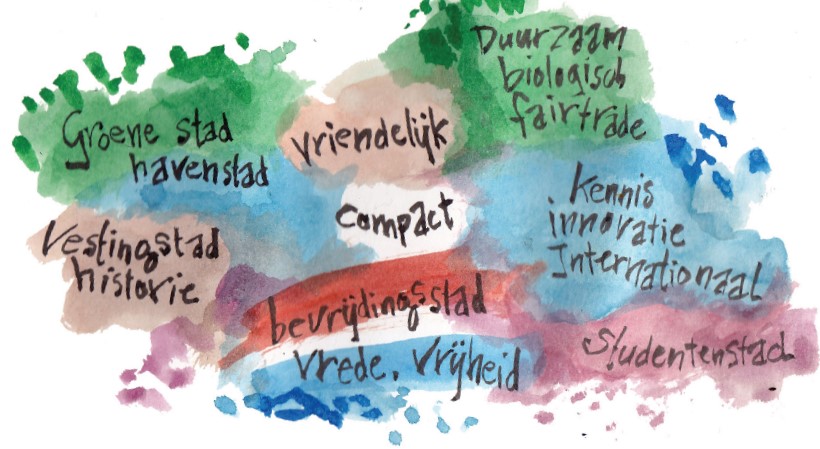 Groene stad
havenstad
vriendelijk
Duurzaam
biologisch
fairtrade
compact
Vestingstad
historie
Kennis
innovatie
Internationaal
bevrijdingsstad
vrede, vrijheid
Studentenstad